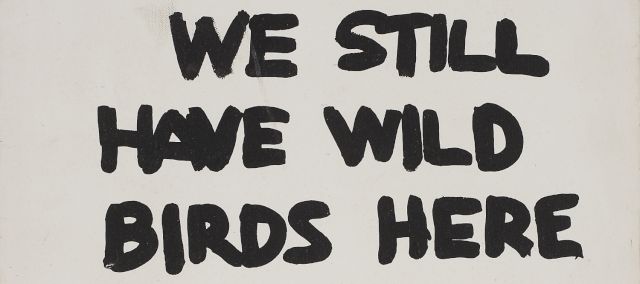 WE STILL
HAVE WILD
BIRDS HERE